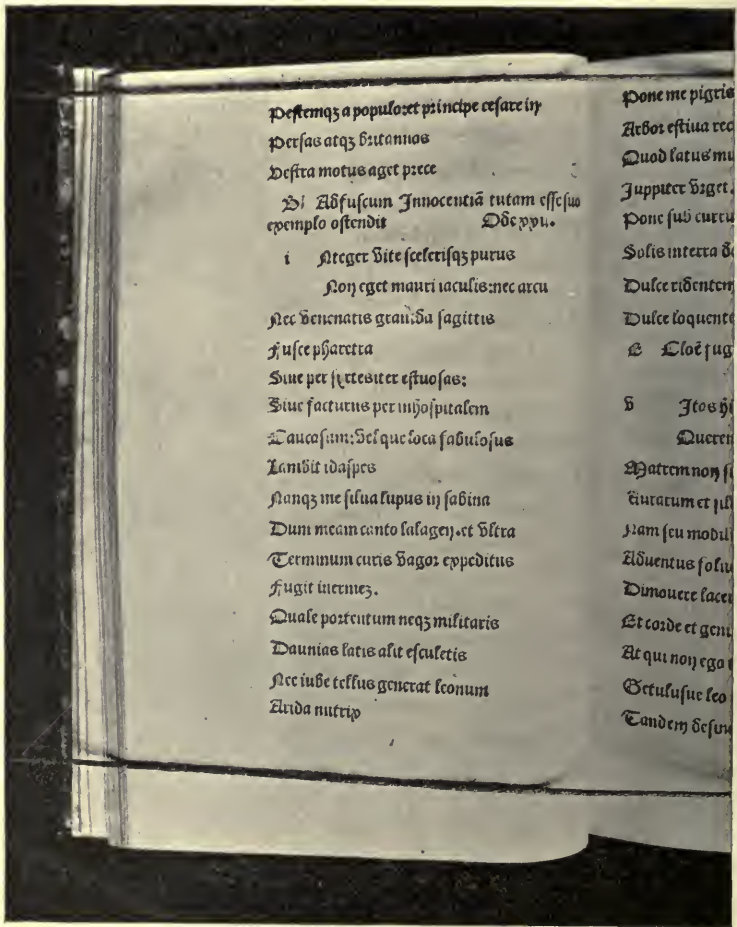 Pestemqꝫ a populo:et principe cesare in
Persas atqꝫ britannos
Vestra motus aget prece
Ad fuscum Innocentiā tutam esse suo
exemplo ostendit Ode xxii.
i Nteger vite scelerisqꝫ purus
Non eget mauri iaculis:nec arcu
Nec venenatis grauida sagittis
Fusce pharetra
Siue per syrtes iter estuosas:
Siue facturus per inhospitalem
Caucasum:vel que loca fabulosus
Lambit idaspes
Nanqꝫ me silua lupus in sabina
Dum meam canto lalagen.et vltra
Terminum curis vagor expeditus
Fugit inermeꝫ.
Quale portentum neqꝫ militaris
Daunias latis alit esculetis
Nec iube tellus generat leonum
Arida nutrix
Pone me pigris
Arbor estiua rec
Quod latus mu
Juppiter vrget.
Pone sub curru
Solis in terra d
Dulce ridentem
Dulce loquente
Cloē fug
v Itas hi
Queren
Matrem non si
Nam seu mobil
Aduentus foliu
Dimouere lacer
Et corde et genu
At qui non ego t
Getulusue leo
Tandem desin